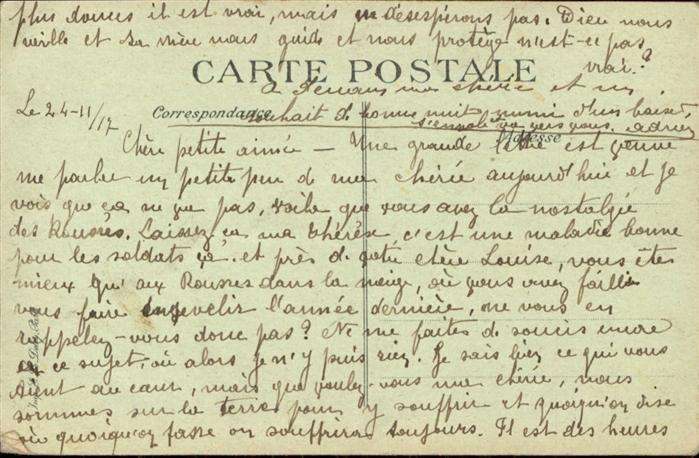 plus douces il est vrai, mais ne désespérons pas. Dieu nous
veille et sa mère nous guide et nous protège n'est-ce pas
vrai?
CARTE POSTALE
à demain ma chérie et un
Le 24-11/17
Correspondance
souhait de bonne nuit muni d'un baiser
s'envole vers vous. adrien
Adresse
Chère petite aimée — Une grande lettre est venue
me parler un petit peu de ma chérie aujourd'hui et je
vois que ça ne va pas, voilà que vous avez la nostalgie
des Rousses. Laissez ça ma thérèse, c'est une maladie bonne
pour les soldats ça. et près de votre chère Louise, vous êtes
mieux qu'aux Rousses dans la neige, où vous avez failli
vous faire ensevelir l'année dernière, ne vous en
rappelez-vous donc pas? Ne me faites de soucis
à ce sujet, où alors je n'y puis rien. Je sais bien ce qui vous
tient au cœur, mais que voulez-vous ma chérie, nous
sommes sur la terre pour y souffrir et quoiqu'on dise
où quoiqu'on fasse on souffrira toujours. Il est des heures